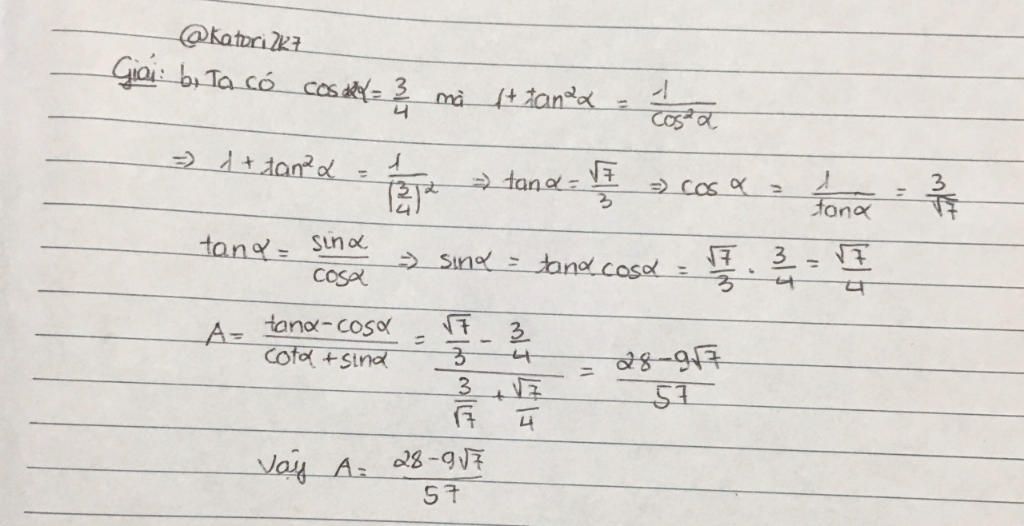 @Katori2k7
Giải: b, Ta có cosα = 3/4 mà 1 + tan²α = 1/cos²α
⇒ 1 + tan²α = 1/(3/4)² ⇒ tanα = √7/3 ⇒ cos α = 1/tanα = 3/√7
tanα = sinα/cosα ⇒ sinα = tanα cosα = √7/3 . 3/4 = √7/4
A = (tanα - cosα)/(cotα + sinα) = (√7/3 - 3/4)/(3/√7 + √7/4) = (28 - 9√7)/57
Vậy A = (28 - 9√7)/57